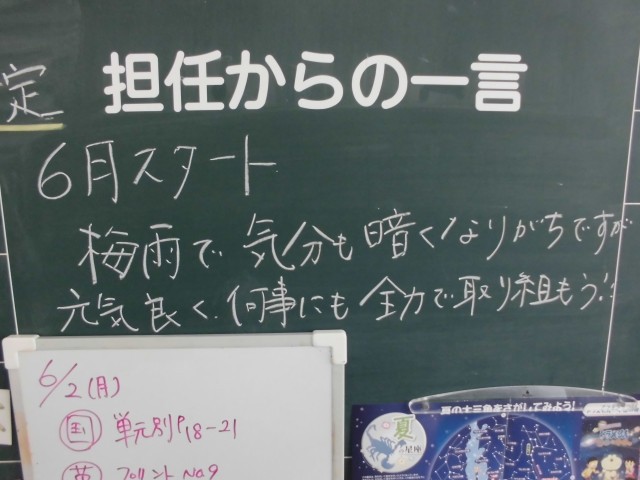 定
担任からの一言
6月スタート
梅雨で気分も暗くなりがちですが
元気良く、何事にも全力で取り組もう!!
6/2(月)
国 単元別P18-21
英 プリントNo9
夏の大三角をさがしてみよう!
夏
星座